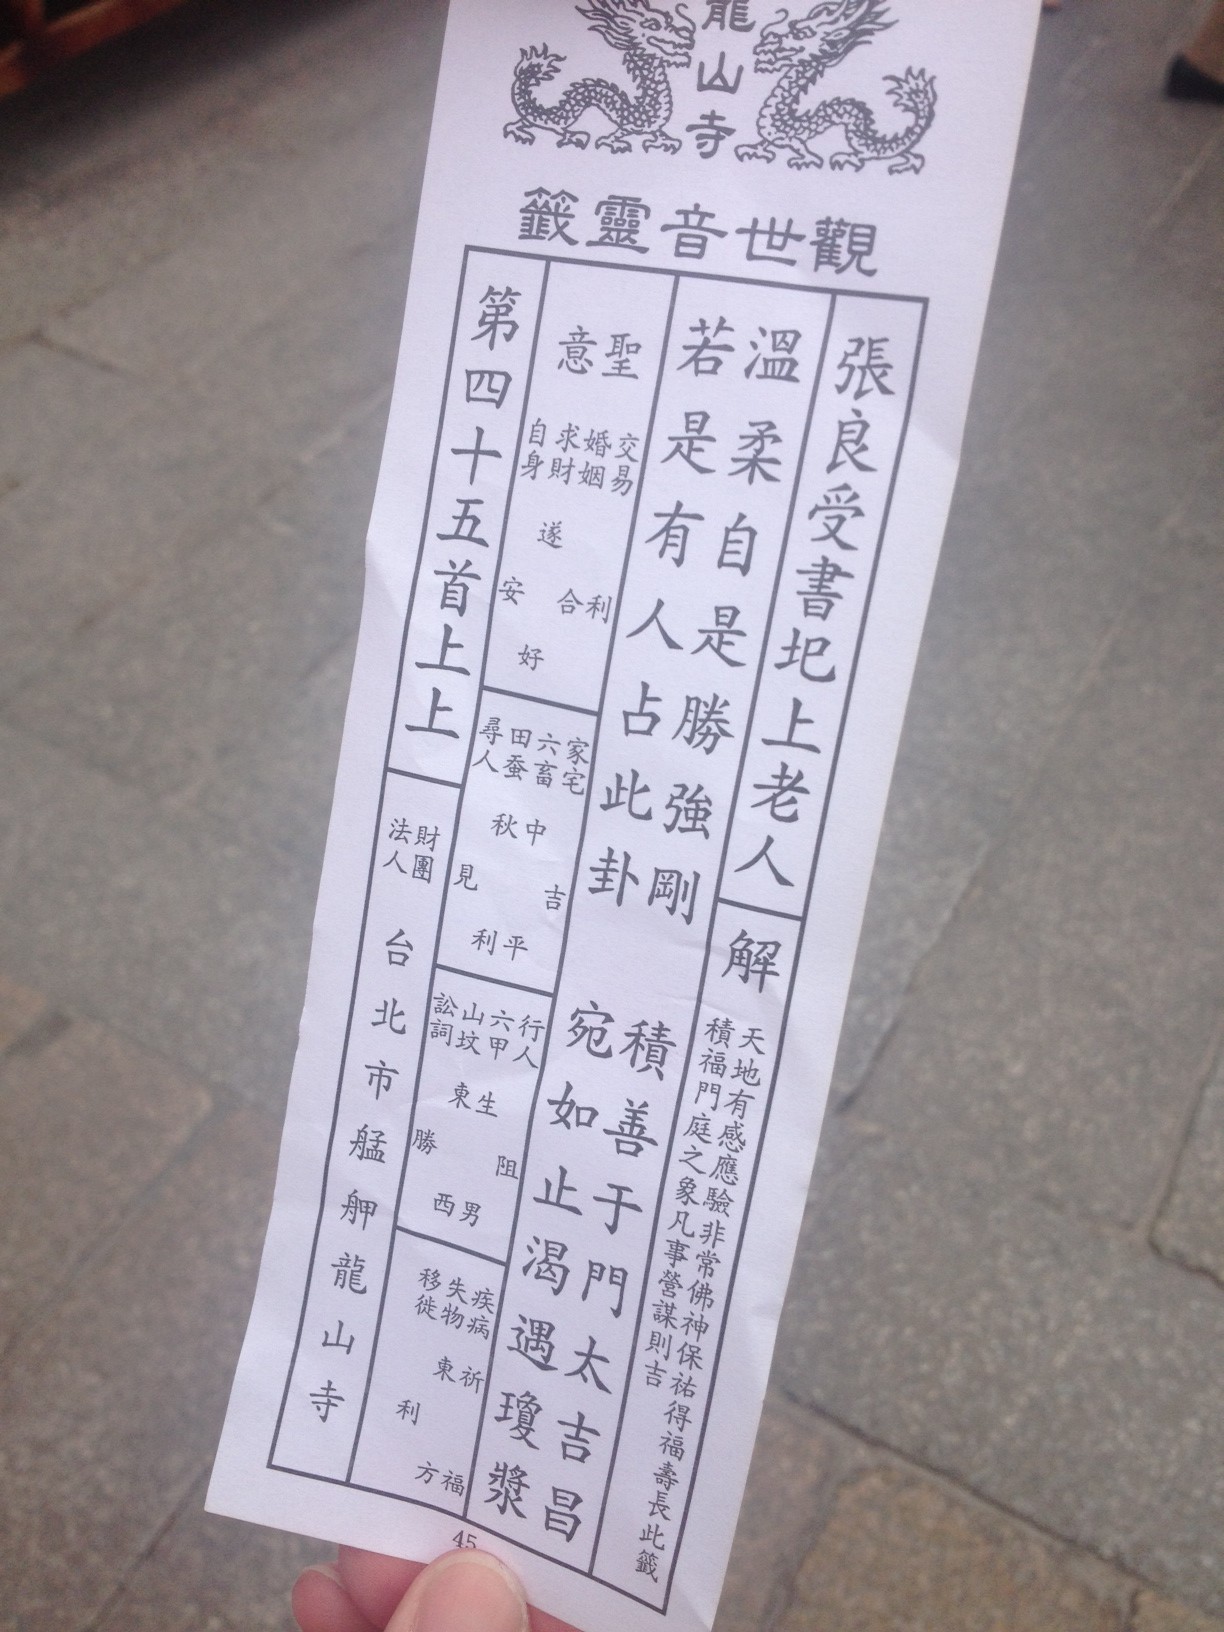 龍山寺
觀世音靈籤
張良受書圯上老人
解
天地有感應驗非常佛神保祐得福壽長此籤
積福門庭之象凡事營謀則吉
溫柔自是勝強剛
積善于門太吉昌
若是有人占此卦
宛如止渴遇瓊漿
聖意
交易 利
婚姻 合
求財 遂好
自身 安
家宅 吉
六畜 中平
田蚕 秋利
尋人 見
行人 阻
六甲 生男
山坟 東西
訟詞 勝
疾病 祈福
失物 東方
移徙 利
第四十五首上上
財團法人 台北市艋舺龍山寺
45